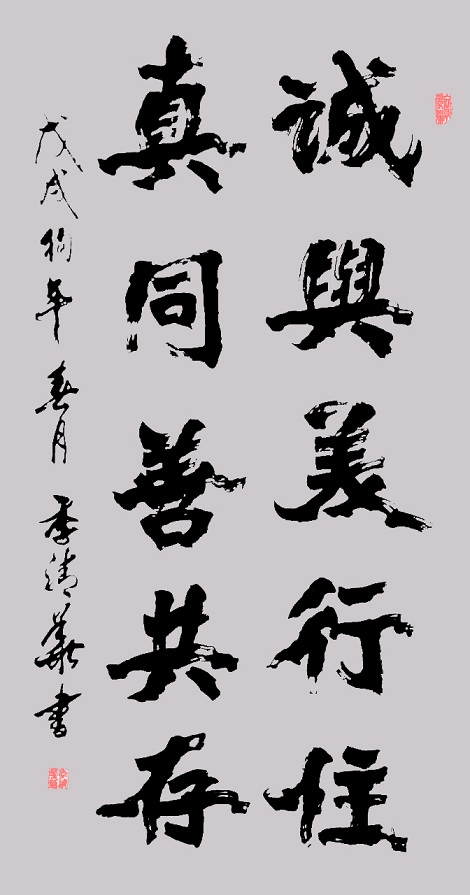 誠與美行往
真同善共存
戊戌狗年春月季清華書